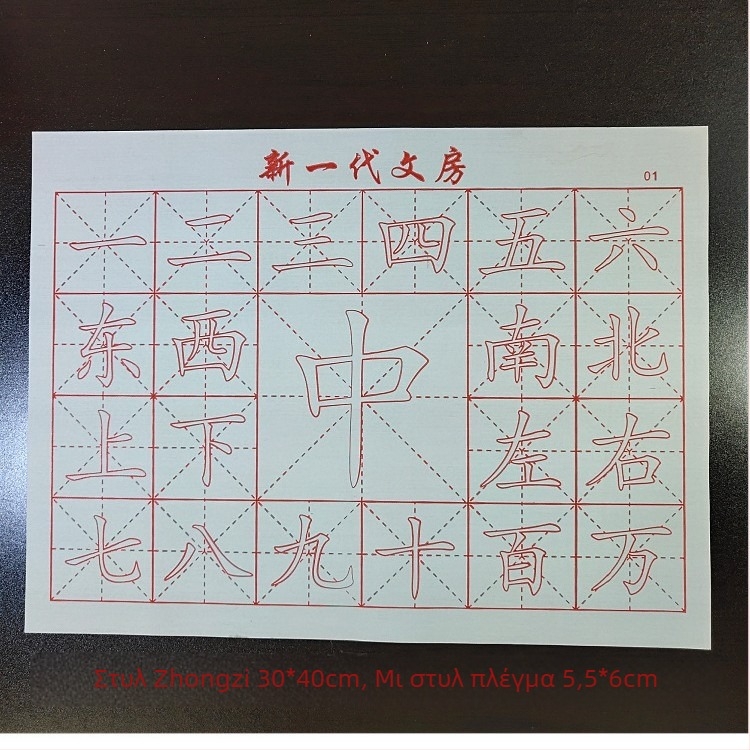 新一代文房
01
一 二 三 四 五 六
东 西 中 南 北
上 下 左 右
七 八 九 十 百 万
Στυλ Zhongzi 30*40cm, Μι στυλ πλέγμα 5,5*6cm